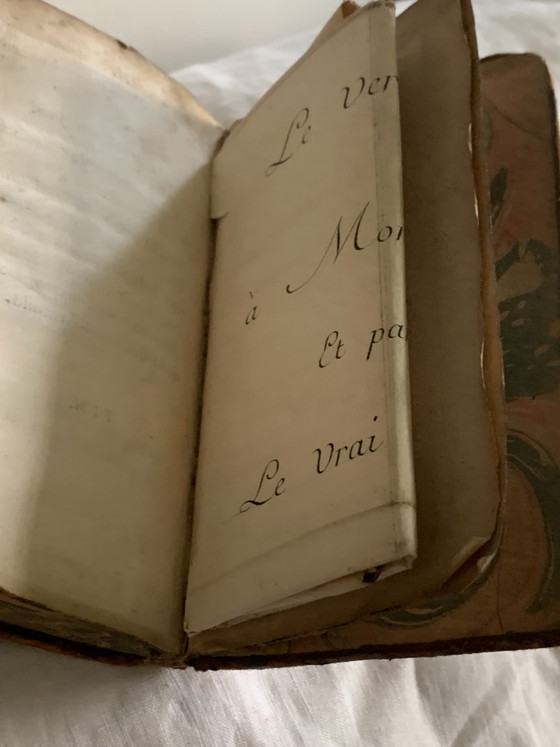 Le Ver
à Mon
Et pa
Le Vrai